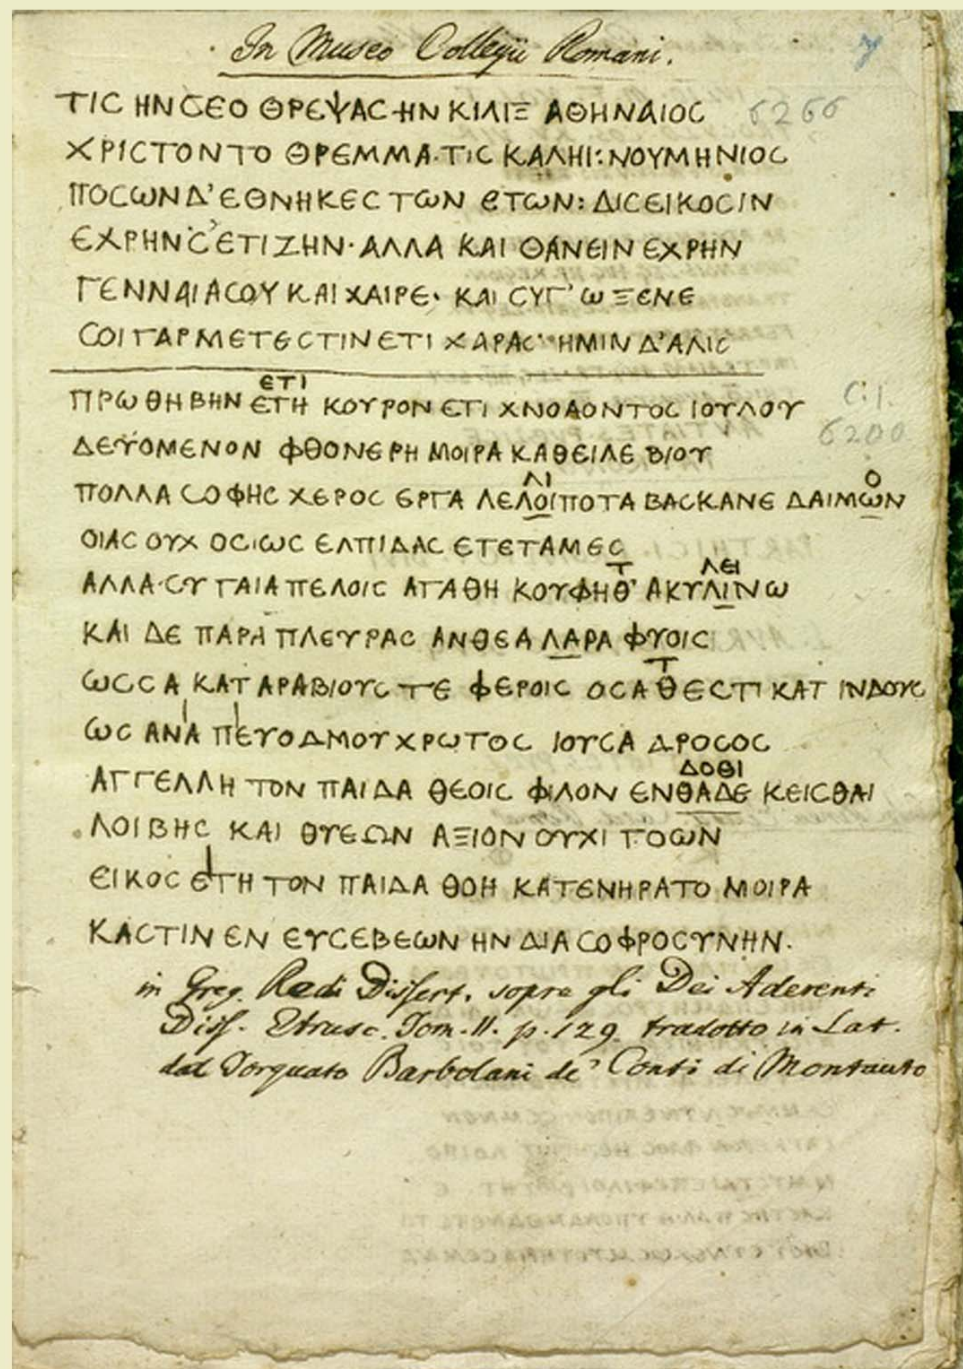 In Museo Collegii Romani.
7
ΤΙϹ ΗΝ ϹΕΟ ΘΡΕΨΑϹ ΗΝ ΚΙΛΙΞ ΑΘΗΝΑΙΟϹ 6266
ΧΡΙϹΤΟΝ ΤΟ ΘΡΕΜΜΑ·ΤΙϹ ΚΑΛΗΙ: ΝΟΥΜΗΝΙΟϹ
ΠΟϹΩΝ Δ' ΕΘΝΗΚΕϹ ΤΩΝ ΕΤΩΝ: ΔΙϹ ΕΙΚΟϹΙΝ
ΕΧΡΗΝ Ϲ' ΕΤΙ ΖΗΝ· ΑΛΛΑ ΚΑΙ ΘΑΝΕΙΝ ΕΧΡΗΝ
ΓΕΝΝΑΙΑ ϹΟΥ ΚΑΙ ΧΑΙΡΕ· ΚΑΙ ϹΥΓ' Ω ΞΕΝΕ
ϹΟΙ ΓΑΡ ΜΕΤΕϹΤΙΝ ΕΤΙ ΧΑΡΑϹ ΗΜΙΝ Δ' ΑΛΙϹ
ΕΤΙ
ΠΡΩΘΗΒΗΝ ΕΤΗ ΚΟΥΡΟΝ ΕΤΙ ΧΝΟΑΟΝΤΟϹ ΙΟΥΛΟΥ C.I.
6200
ΔΕΥΟΜΕΝΟΝ ΦΘΟΝΕΡΗ ΜΟΙΡΑ ΚΑΘΕΙΛΕ ΒΙΟΥ
ΛΙ Ο
ΠΟΛΛΑ ϹΟΦΗϹ ΧΕΡΟϹ ΕΡΓΑ ΛΕΛΟΙΠΟΤΑ ΒΑϹΚΑΝΕ ΔΑΙΜΩΝ
ΟΙΑϹ ΟΥΧ ΟϹΙΩϹ ΕΛΠΙΔΑϹ ΕΤΕΤΑΜΕϹ
Τ ΛΕΙ
ΑΛΛΑ·ϹΥ ΓΑΙΑ ΠΕΛΟΙϹ ΑΓΑΘΗ ΚΟΥΦΗ Θ' ΑΚΥΛΙΝΩ
ΚΑΙ ΔΕ ΠΑΡΑ ΠΛΕΥΡΑϹ ΑΝΘΕΑ ΛΑΡΑ ΦΥΟΙϹ
Τ
ΩϹϹΑ ΚΑΤ ΑΡΑΒΙΟΥϹ ΤΕ ΦΕΡΟΙϹ ΟϹΑ ΘΕϹΤΙ ΚΑΤ ΙΝΔΟΥϹ
ΩϹ ΑΝΑ ΠΕΥΟΔΜΟΥ ΧΡΩΤΟϹ ΙΟΥϹΑ ΔΡΟϹΟϹ
ΔΟΘΙ
ΑΓΓΕΛΛΗ ΤΟΝ ΠΑΙΔΑ ΘΕΟΙϹ ΦΙΛΟΝ ΕΝΘΑΔΕ ΚΕΙϹΘΑΙ
ΛΟΙΒΗϹ ΚΑΙ ΘΥΕΩΝ ΑΞΙΟΝ ΟΥΧΙ ΓΟΩΝ
ΕΙΚΟϹ ΕΤΗ ΤΟΝ ΠΑΙΔΑ ΘΟΗ ΚΑΤΕΝΗΡΑΤΟ ΜΟΙΡΑ
ΚΑϹΤΙΝ ΕΝ ΕΥϹΕΒΕΩΝ ΗΝ ΔΙΑ ϹΟΦΡΟϹΥΝΗΝ.
in Greg. Redi Dissert. sopra gli Dei Aderenti
Diss. Etrusc. Tom. II. p. 129 tradotto in Lat.
dal Torquato Barbolani de' Conti di Montauto